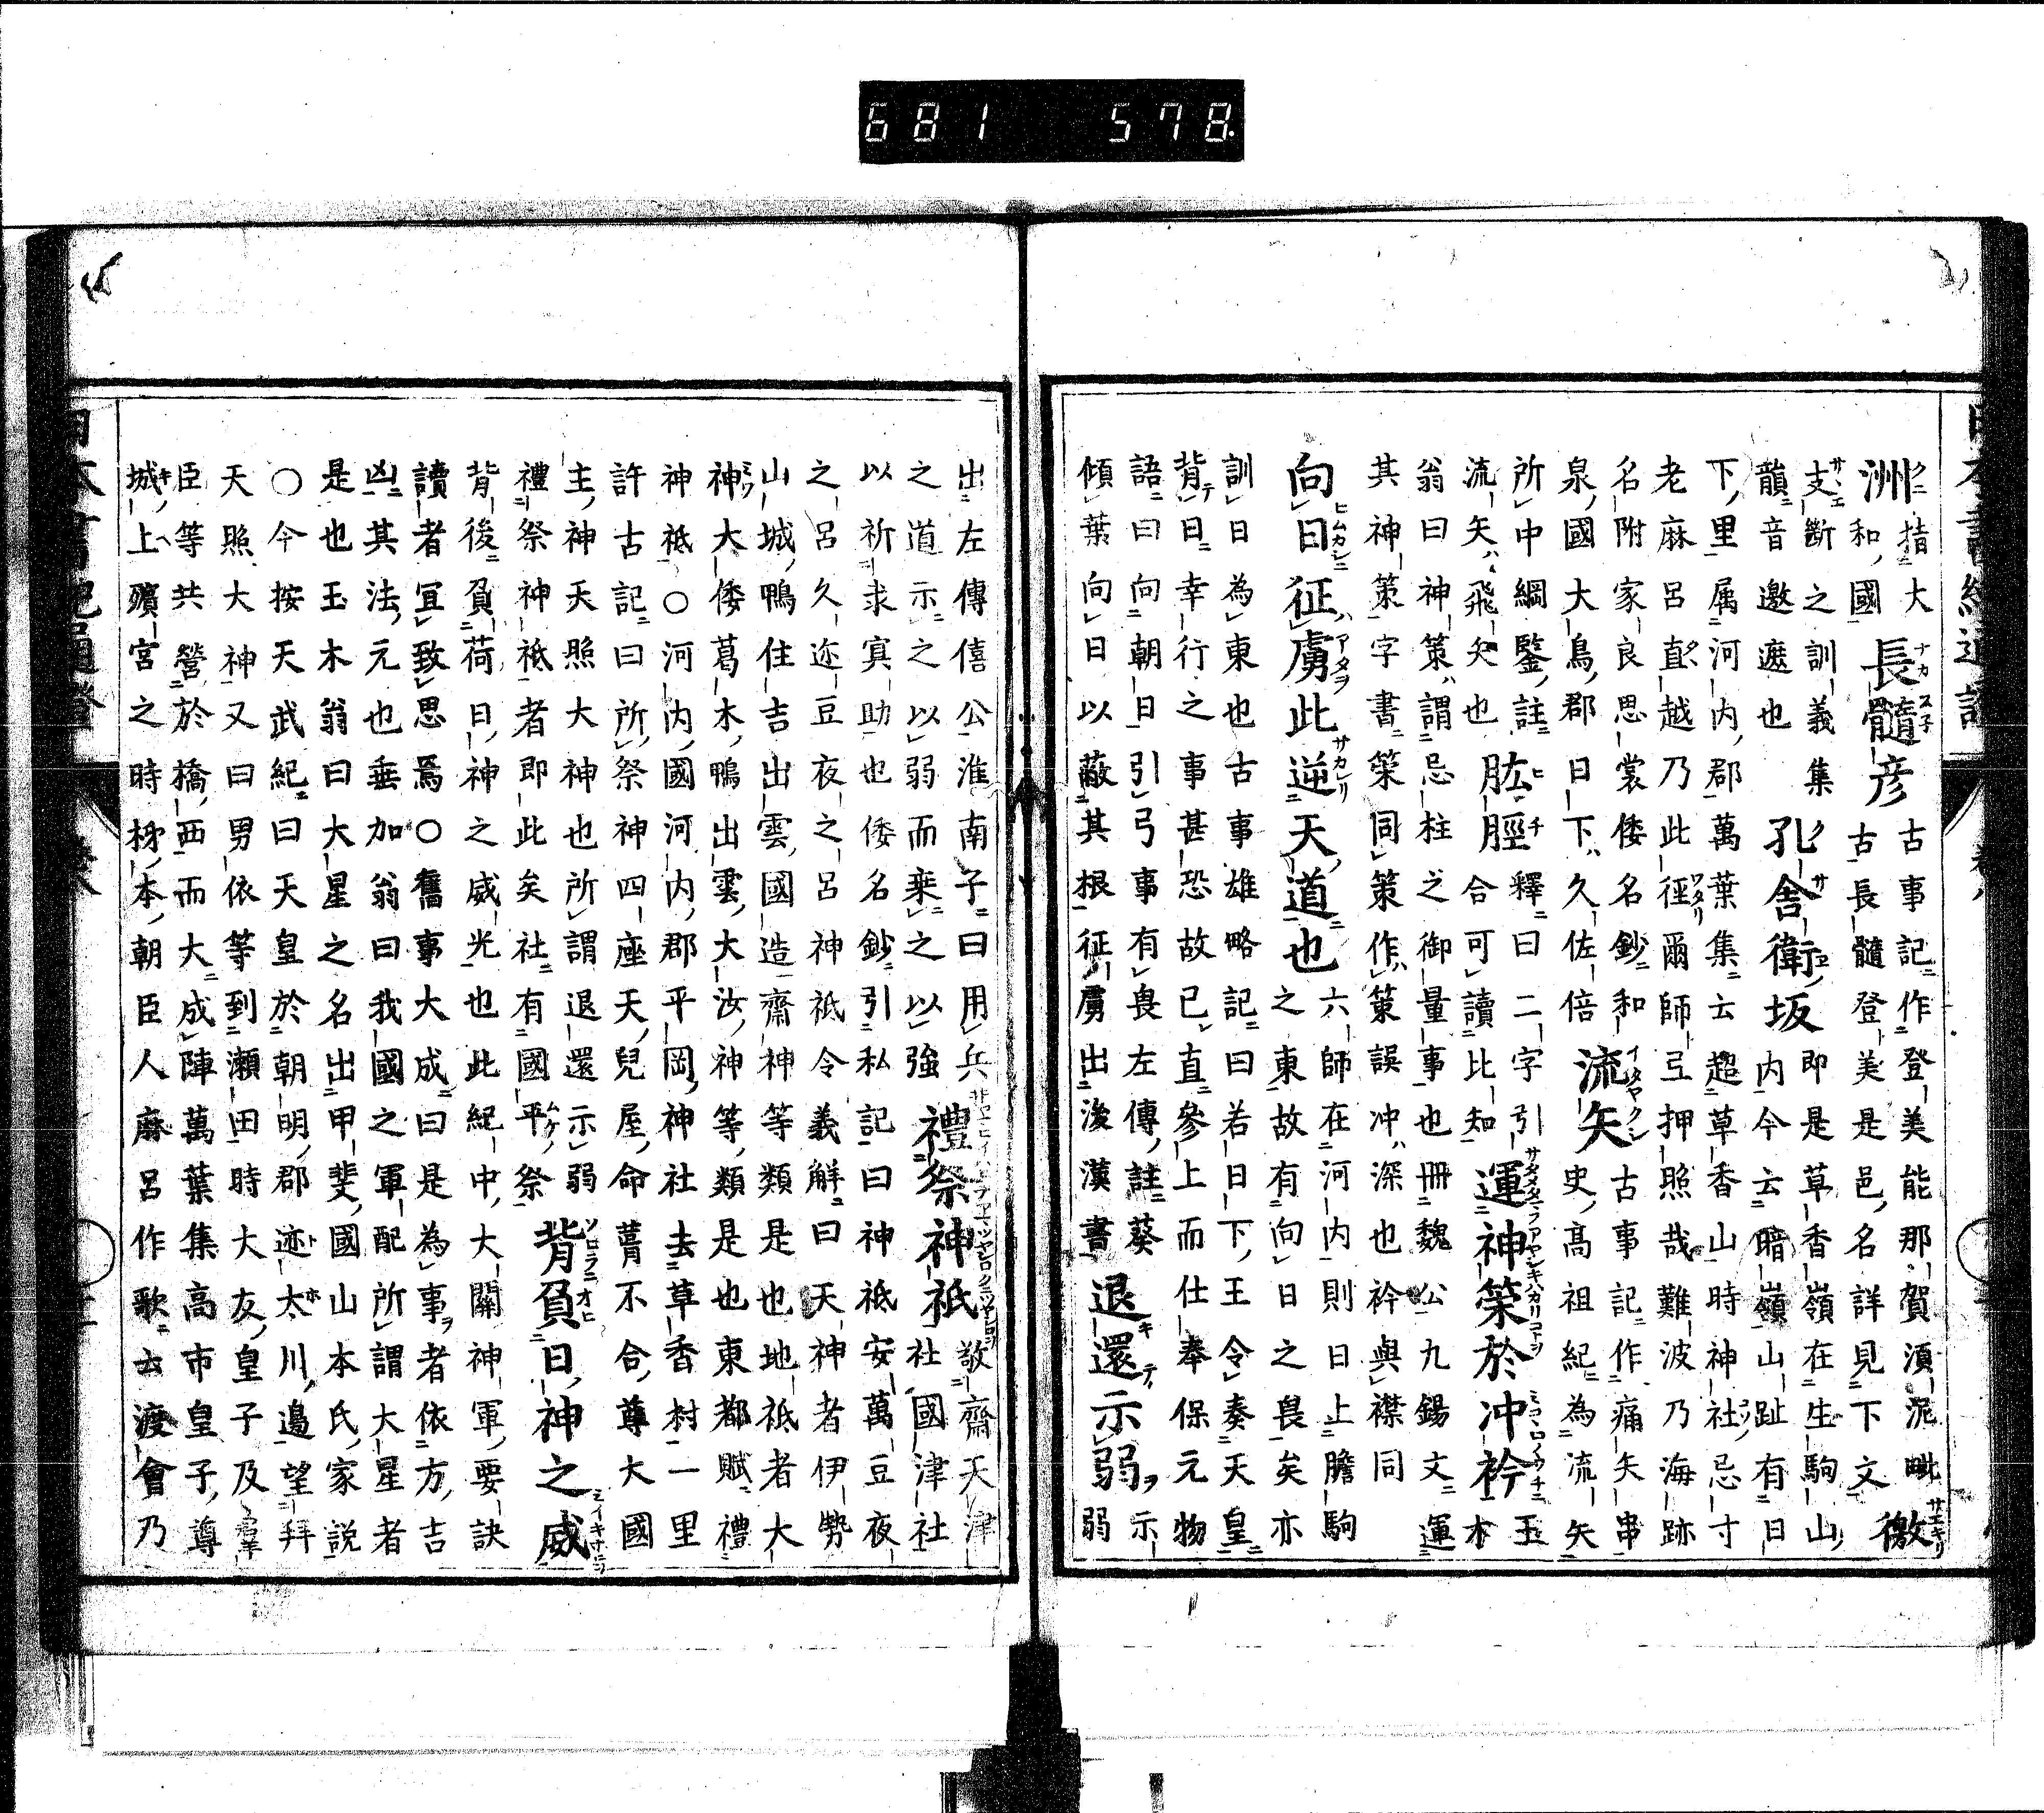 681 578.
洲 指大和國 長髓彦 古事記作登美能那賀須泥毗古長髓登美是邑名詳見下文 徼
支斷之訓義集韻音邀遮也 孔舎衛坂 即是草香嶺在生駒山内今云暗嶺山趾有日
下里属河内郡萬葉集云超草香山時神社忌寸
老麻呂直越乃此徑爾師弖押照哉難波乃海跡
名附家良思裳倭名鈔和
泉國大鳥郡日下久佐倍 流矢 古事記作痛矢串史高祖紀為流矢
所中綱鑒註流矢飛矢也 肱脛 釋曰二字引合可讀比知 運神策於冲衿 玉木
翁曰神策謂忌柱之御量事也冊魏公九錫文運
其神策字書策同策作策誤冲深也衿與襟同
向日征虜此逆天道也 六師在河内則日上膽駒之東故有向日之畏矣亦
訓日為東也古事雄略記曰若日下王令奏天皇
背日幸行之事甚恐故已直參上而仕奉保元物
語曰向朝日引弓事有畏左傳註葵
傾葉向日以蔽其根征虜出後漢書 退還示弱 示弱
出左傳僖公淮南子曰用兵
之道示之以弱而乗之以強 禮祭神祇 敬齋天津社國津社
以祈求寘助也倭名鈔引私記曰神祇安萬豆夜
之呂久迩豆夜之呂神祇令義解曰天神者伊勢
山城鴨住吉出雲國造齋神等類是也地祇者大
神大倭葛木鴨出雲大汝神等類是也東都賦禮
神祇○河内國河内郡平岡神社去草香村一里
許古記曰所祭神四座天兒屋命薦不合尊大國
主神天照大神也所謂退還示弱
禮祭神祇者即此矣社有國平祭 背負日神之威
背後負荷日神之威光也此紀中大關神軍要訣
讀者宜致思焉○舊事大成曰是為事者依方吉
凶其法元也垂加翁曰我國之軍配所謂大星者
是也玉木翁曰大星之名出甲斐國山本氏家説
○今按天武紀曰天皇於朝明郡迹太川邊望拜
天照大神又曰男依等到瀬田時大友皇子及羣
臣等共營於橋西而大成陣萬葉集高市皇子尊
城上殯宮之時柿本朝臣人麻呂作歌云渡會乃